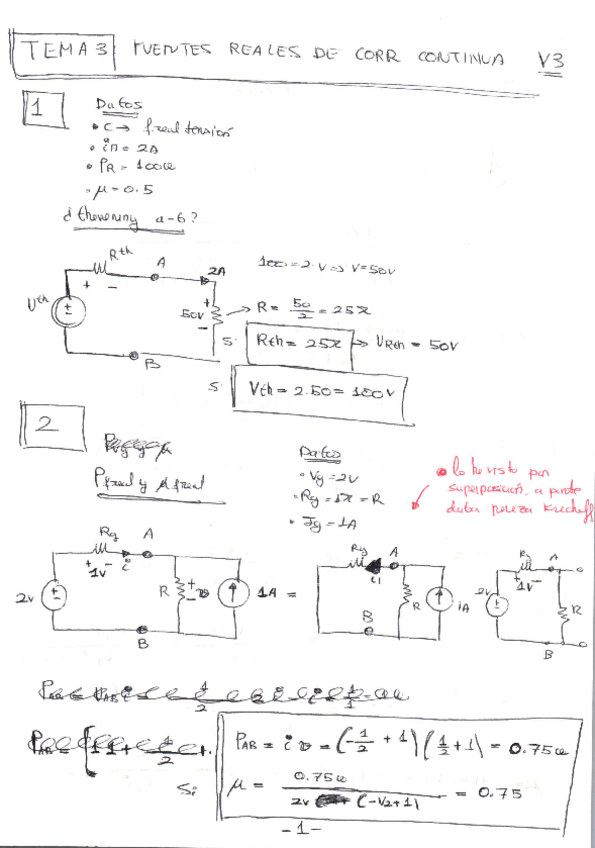 TEMA 3 FUENTES REALES DE CORR CONTINUA V3
1
Datos
• C → f real tensión
• iA = 2A
• PR = 100w
• μ = 0.5
d thevening a-b?
Rth A 2A
100 = 2·V ⇒ V = 50V
+ -
Uth ±
+ 50V -
→ R = 50/2 = 25Ω
S: Rth = 25Ω → URth = 50V
B
S: Vth = 2.50 = 100V
2
Pfreal y μ freal
Datos
• Vg = 2V
• Rg = 1Ω = R
• Ig = 1A
• lo he visto por
superposición, a parte
daba pereza Kirchoff
Rg A
+ 1V - i
2V ± R + v - 1A =
B
Rg A
i1
R 1A
B
Rg A
+ 1V -
2V ± R
B
PAB = i v = (-1/2 + 1) (1/2 + 1) = 0.75w
S: μ = 0.75w / 2V (-1/2+1) = 0.75
- 1 -